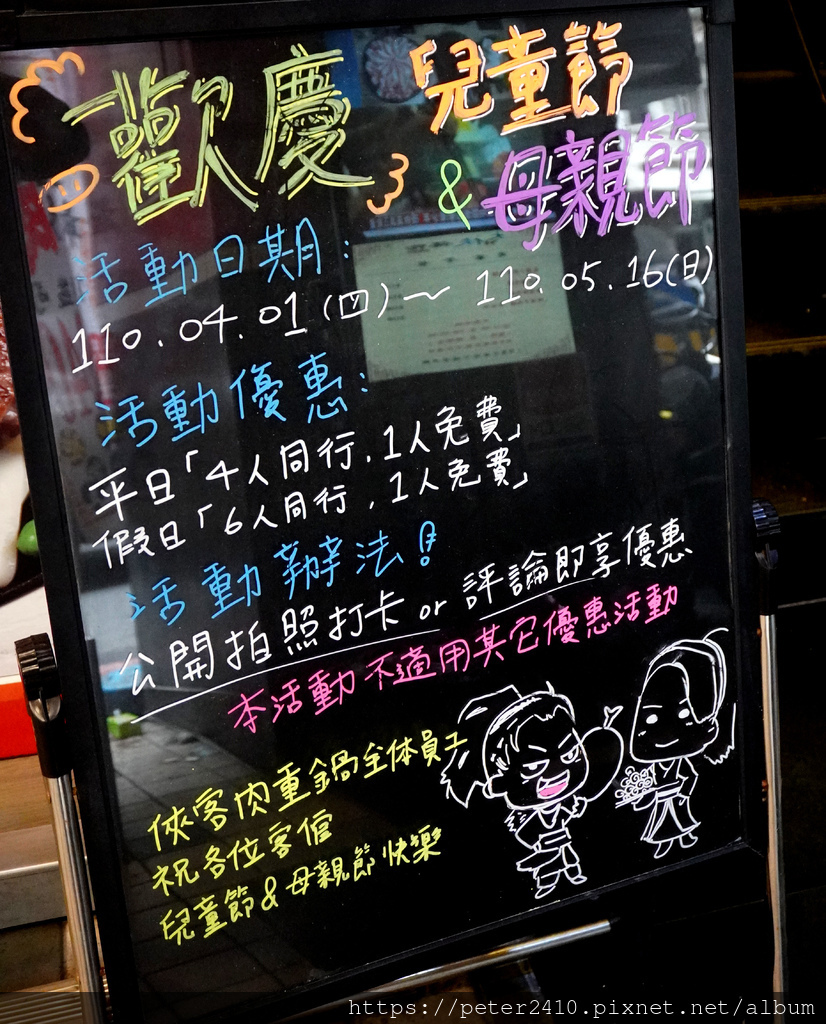 歡慶 兒童節
& 母親節
活動日期:
110.04.01(四)~ 110.05.16(日)
活動優惠:
平日「4人同行,1人免費」
假日「6人同行,1人免費」
活動辦法!
公開拍照打卡 or 評論即享優惠
本活動不適用其它優惠活動
俠客肉重鍋全体員工
祝各位客倌
兒童節&母親節快樂
https://peter2410.pixnet.net/album